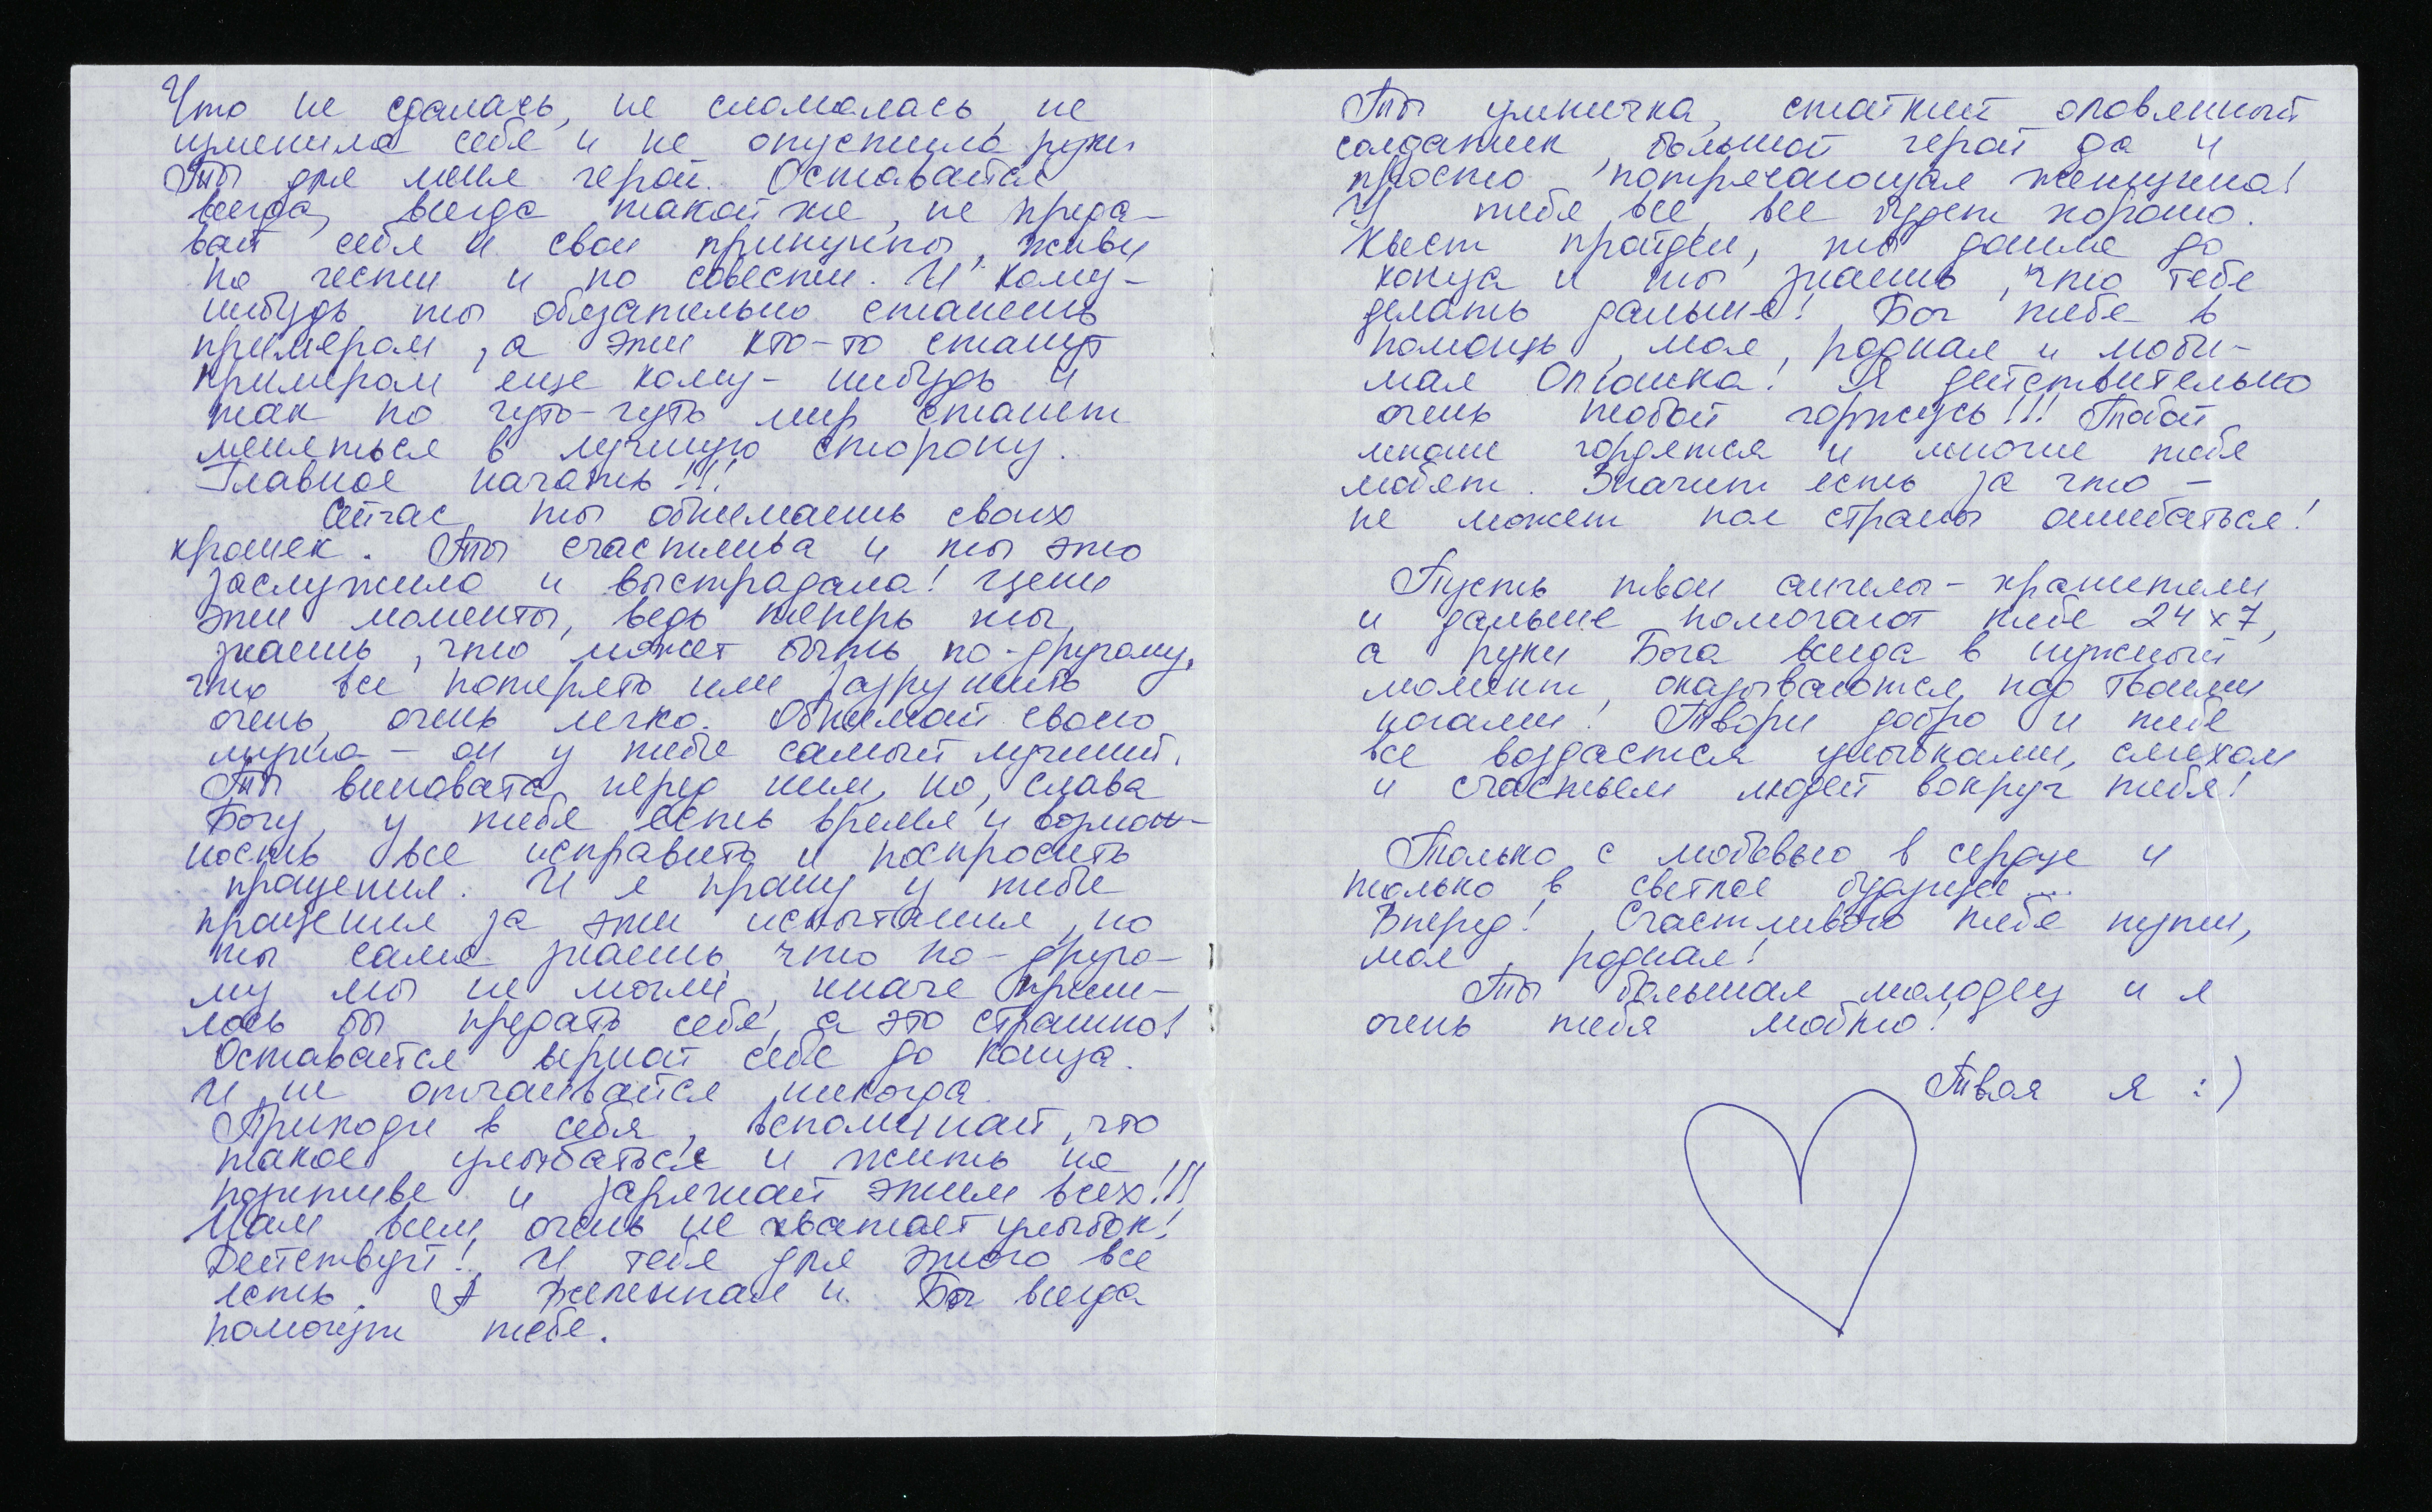 Что не сдалась, не сломалась, не
изменила себе и не опустила руки.
Ты для меня герой. Оставайся
всегда, всегда такой же, не преда-
вай себя и свои принципы, живи
по чести и по совести. И кому-
нибудь ты обязательно станешь
примером, а эти кто-то станут
примером еще кому-нибудь и
так по чуть-чуть мир станет
меняться в лучшую сторону.
Главное начать!!!
Сейчас, ты обнимаешь своих
крошек. Ты счастлива и ты это
заслужила и выстрадала! Цени
эти моменты, ведь теперь ты
знаешь, что может быть по-другому,
что все потерять или разрушить
очень, очень легко. Обнимай своего
мужа – он у тебя самый лучший.
Ты виновата перед ним, но, слава
Богу, у тебя есть время и возмож-
ность все исправить и попросить
прощения. И я прошу у тебя
прощения за эти испытания, но
ты сама знаешь, что по-друго-
му мы не могли, иначе приш-
лось бы предать себя, а это страшно!
Оставайся верной себе до конца.
И не отчаивайся никогда.
Приходи в себя, вспоминай, что
такое улыбаться и жить на
позитиве и заряжай этим всех!!!
Нам всем очень не хватает улыбок!
Действуй! У тебя для этого все
есть. А Вселенная и Бог всегда
помогут тебе.
Ты умничка, стойкий оловянный
солдатик, большой герой да и
просто потрясающая женщина!
У тебя все, все будет хорошо.
Квест пройден, ты дошла до
конца и ты знаешь, что тебе
делать дальше! Бог тебе в
помощь, моя, родная и люби-
мая Олюшка! Я действительно
очень тобой горжусь!!! Тобой
многие гордятся и многие тебя
любят. Значит есть за что –
не может пол страны ошибаться!
Пусть твои ангелы-хранители
и дальше помогают тебе 24х7,
а руки Бога всегда в нужный
момент, оказываются под твоими
ногами! Твори добро и тебе
все воздастся улыбками, смехом
и счастьем людей вокруг тебя!
Только с любовью в сердце и
только в светлое будущее...
Вперед! Счастливого тебе пути,
моя, родная!
Ты большая молодец и я
очень тебя люблю!
Твоя я :)